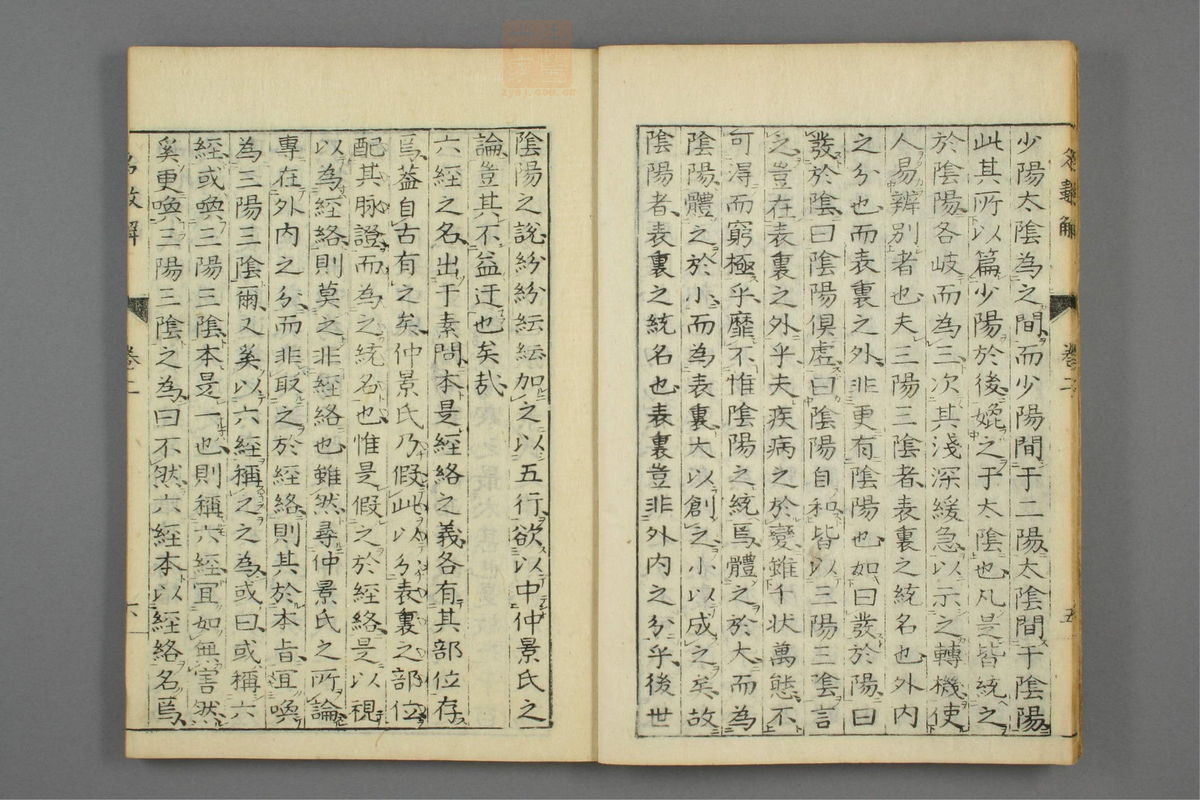 少陽太陰為之間而少陽間于二陽太陰間于陰陽
此其所以篇少陽於後娩之于太陰也凡是皆統之
於陰陽各岐而為三次其淺深緩急以示之轉機使
人易辨別者也夫三陽三陰者表裏之統名也外内
之分也而表裏之外非更有陰陽也如曰發於陽曰
發於陰曰陰陽俱虛曰陰陽自和皆以三陽三陰言
之豈在表裏之外乎夫疾病之於變雖千状萬態不
可得而窮極乎靡不惟陰陽之統焉體之於大而為
陰陽體之於小而為表裏大以創之小以成之矣故
陰陽者表裏之統名也表裏豈非外内之分乎後世
卷二
五
陰陽之說紛紛紜紜加之以五行欲以中仲景氏之
論豈其不益迂也矣哉
六經之名出于素問本是經絡之義各有其部位存
焉蓋自古有之矣仲景氏乃假此以分表裏之部位
配其脉證而為之統名也惟是假之於經絡是以視
以為經絡則莫之非經絡也雖然尋仲景氏之所論
專在外内之分而非取之於經絡則其於本旨宜喚
為三陽三陰爾又奚以六經稱之之為或曰或稱六
經或喚三陽三陰本是一也則稱六經宜如無害然
奚更喚三陽三陰之為曰不然六經本以經絡名焉
卷二
六